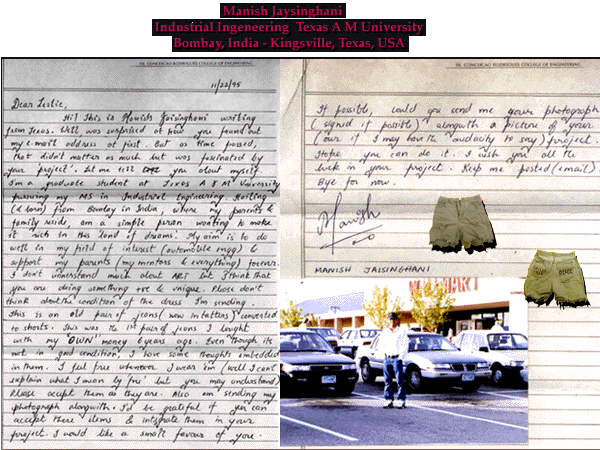 Manish Jaysinghani
Industrial Ingeneering Texas A M University
Bombay, India - Kingsville, Texas, USA
FR. CONCEICAO RODRIGUES COLLEGE OF ENGINEERING
11/22/95
Dear Leslie,
Hi! This is Manish Jaisinghani writing
from Texas. Well was surprised at how you found out
my e-mail address at first. But as time passed,
that didn't matter as much but was fascinated by
your 'project'. Let me tell you about myself
I'm a graduate student at Texas A & M University
pursuing my MS in Industrial Engineering. Hailing
(& born) from Bombay in India, where my parents &
family reside, am a simple person wanting to make
it rich in this land of dreams. My aim is to do
well in my field of interest (automobile engg) &
support my parents (my mentors & everything) forever.
I don't understand much about ART but I think that
you are doing something +ve & unique. Please don't
think about the condition of the dress I'm sending.
This is an old pair of jeans (now in tatters) converted
to shorts. This was the 1st pair of jeans I bought
with my 'OWN' money 6 years ago. Even though its
not in good condition, I have some thoughts embedded
in them. I feel free whenever I wear 'em (well I can't
explain what I mean by 'free' but you may understand)
Please accept them as they are. Also am sending my
photograph alongwith. I'd be grateful if you can
accept these items & integrate them in your
project. I would like a small favour of you.
FR. CONCEICAO RODRIGUES COLLEGE OF ENGINEERING
If possible, could you send me your photograph
(signed if possible) alongwith a picture of your
(our if I may have the 'audacity to say) project.
Hope you can do it. I wish you all the
luck in your project. Keep me posted (email).
Bye for now.
Manish
MANISH JAISINGHANI
MART